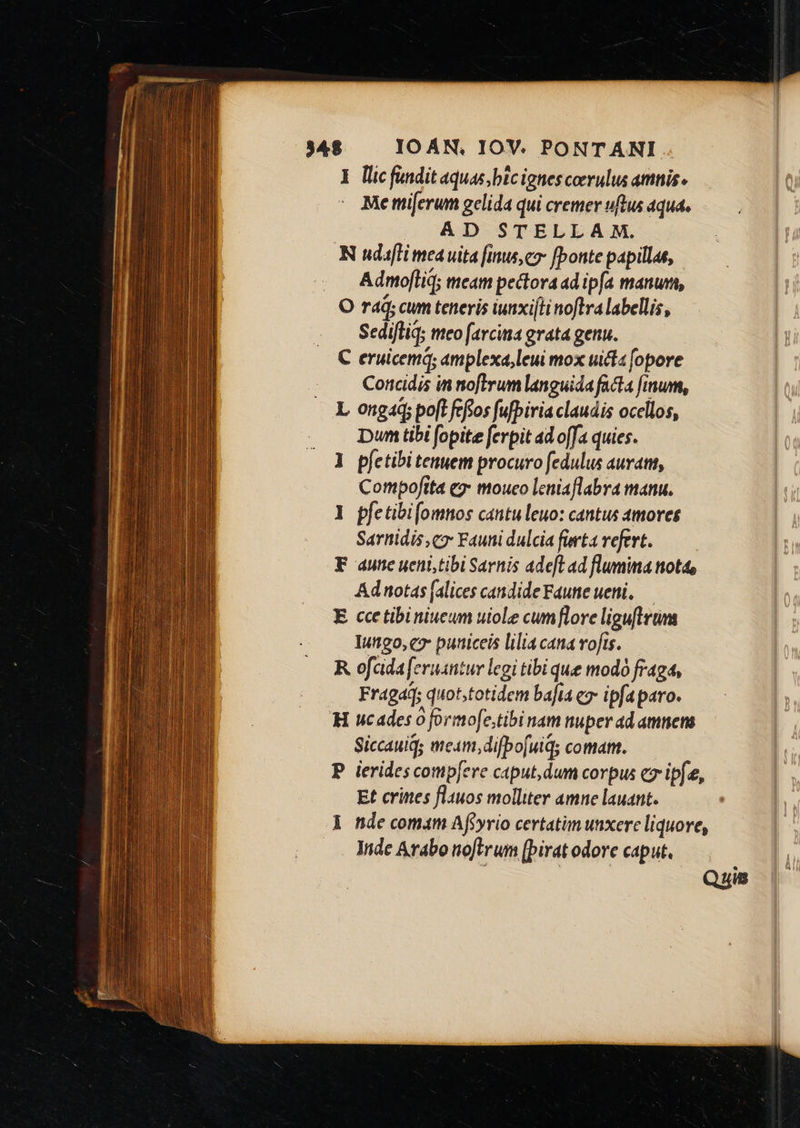 348 IOAN. IOV. PONTANI
I llic fundit aquas, hîc ignes cœrulus amnis.
Me miſerum gelida qui cremer uſtus aqua.
AD STELLAM.
N udaſti mea uita ſinus, & ſponte papillas,
Admoſtiq; meam pectora ad ipſa manum,
O raq; cum teneris iunxiſti noſtra labellis,
Sediſtiq; meo ſarcina grata genu.
C eruicemq; amplexa, leui mox uicta ſopore
Concidis in noſtrum languida facta ſinum,
L ongaq; poſt feſſos ſuſpiria claudis ocellos,
Dum tibi ſopitæ ſerpit ad oſſa quies.
I pſe tibi tenuem procuro ſedulus auram,
Compoſita & moueo lenia flabra manu.
I pſe tibi ſomnos cantu leuo: cantus amores
Sarnidis, & Fauni dulcia furta refert.
F aune ueni, tibi Sarnis adeſt ad flumina nota,
Ad notas ſalices candide Faune ueni.
E cce tibi niueum uiolæ cum flore liguſtrum
Iungo, & puniceis lilia cana roſis.
R oſcida ſeruantur legi tibi quæ modò fraga,
Fragaq; quot, totidem baſia & ipſa paro.
H uc ades ô formoſe, tibi nam nuper ad amnem
Siccauiq; meam, diſpoſuiq; comam.
P ierides compſere caput, dum corpus & ipſæ,
Et crines flauos molliter amne lauant.
I nde comam Aſſyrio certatim unxere liquore,
Inde Arabo noſtrum ſpirat odore caput.
Quis